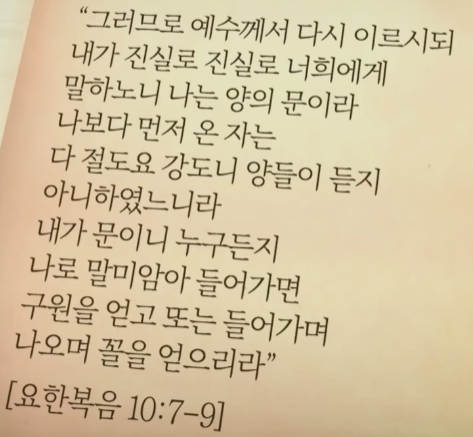 “그러므로 예수께서 다시 이르시되
내가 진실로 진실로 너희에게
말하노니 나는 양의 문이라
나보다 먼저 온 자는
다 절도요 강도니 양들이 듣지
아니하였느니라
내가 문이니 누구든지
나로 말미암아 들어가면
구원을 얻고 또는 들어가며
나오며 꼴을 얻으리라”
[요한복음 10:7-9]